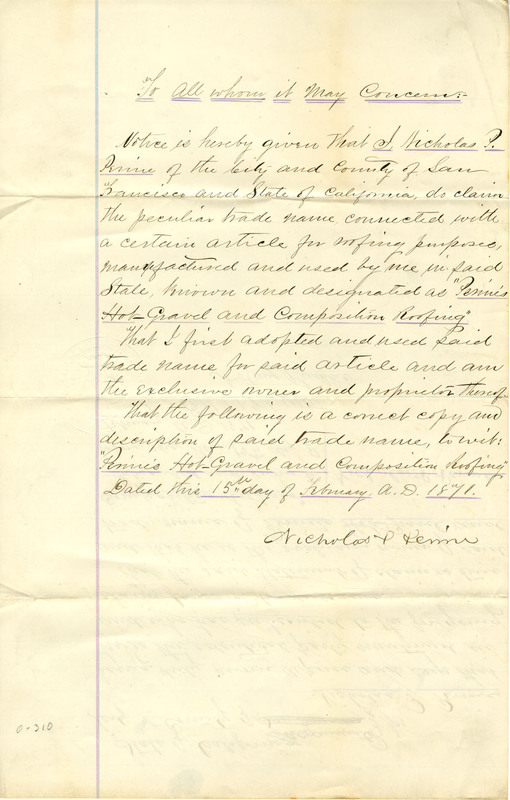 To All whom it May Concern:-
Notice is hereby given that I, Nicholas P.
Perine of the City and County of San
Francisco and State of California, do claim
the peculiar trade name connected with
a certain article for roofing purposes,
manufactured and used by me in said
State, known and designated as "Perine's
Hot-Gravel and Composition Roofing"
That I first adopted and used said
trade name for said article and am
the exclusive owner and proprietor thereof.
That the following is a correct copy and
description of said trade name, to wit:
"Perine's Hot-Gravel and Composition Roofing"
Dated this 15th day of February A.D. 1871.
Nicholas P Perine
0-210